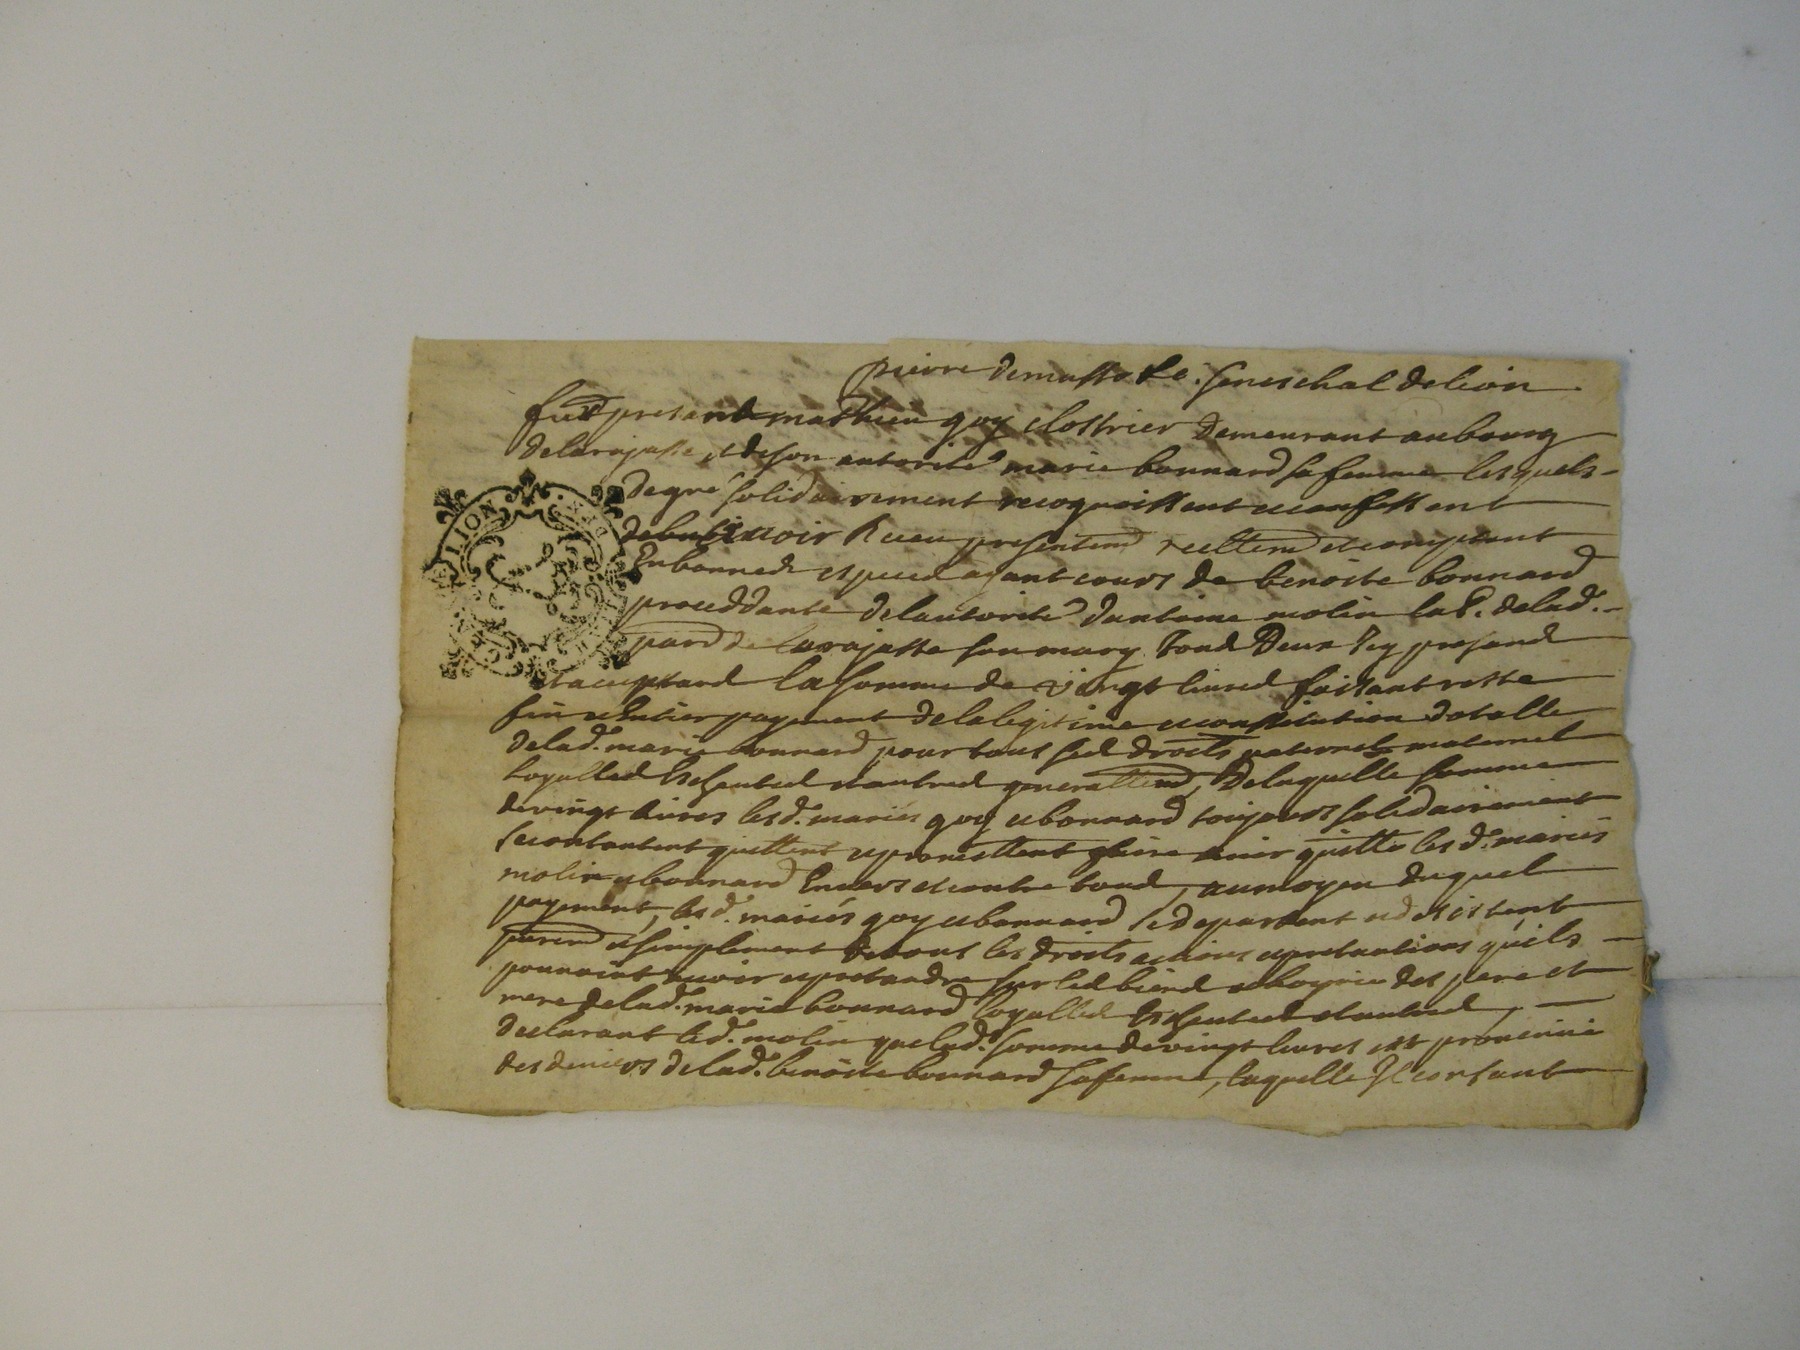 pierre demasso &c. seneschal de lion
fust present mathieu goy clostrier demeurant au bourg
delarajasse et de son autorité marie bonnard sa femme lesquels
de gré solidairement recognoissent et confessent
avoir Receu presentemd reellemd et comptant
En bonned especed ayant cours de benoiste bonnard
proceddante de lautorité dantoine molin lab. de lad.
parr de Larajasse son mary Toud Deux Icy presend
et acceptand la somme de vingt livred faisant reste
fin et Entier payement de la legitime et constitution dotalle
de lad. marie bonnard pour tous sed droits paternels maternel
loyalled Escheuted et autred generallemd, De laquelle somme
de vingt livres lesd. mariés goy et bonnard toujours solidairement
se contantent quittent et promettent faire tenir quitte les d. mariés
molin et bonnard Envers et contre toud, au moyen duquel
payement, les d. mariés goy et bonnard se departent et desistent
purem et simplement de tous les droits actions et pretantions quils
pouroint avoir et pretandre sur led biend et hoyrie des pere et
mere de lad. marie bonnard loyalled Escheuted et autred,
declarant led. molin que lad. somme de vingt livres est provenüe
des deniers de lad. benoiste bonnard sa femme, laquelle Il consant
LION